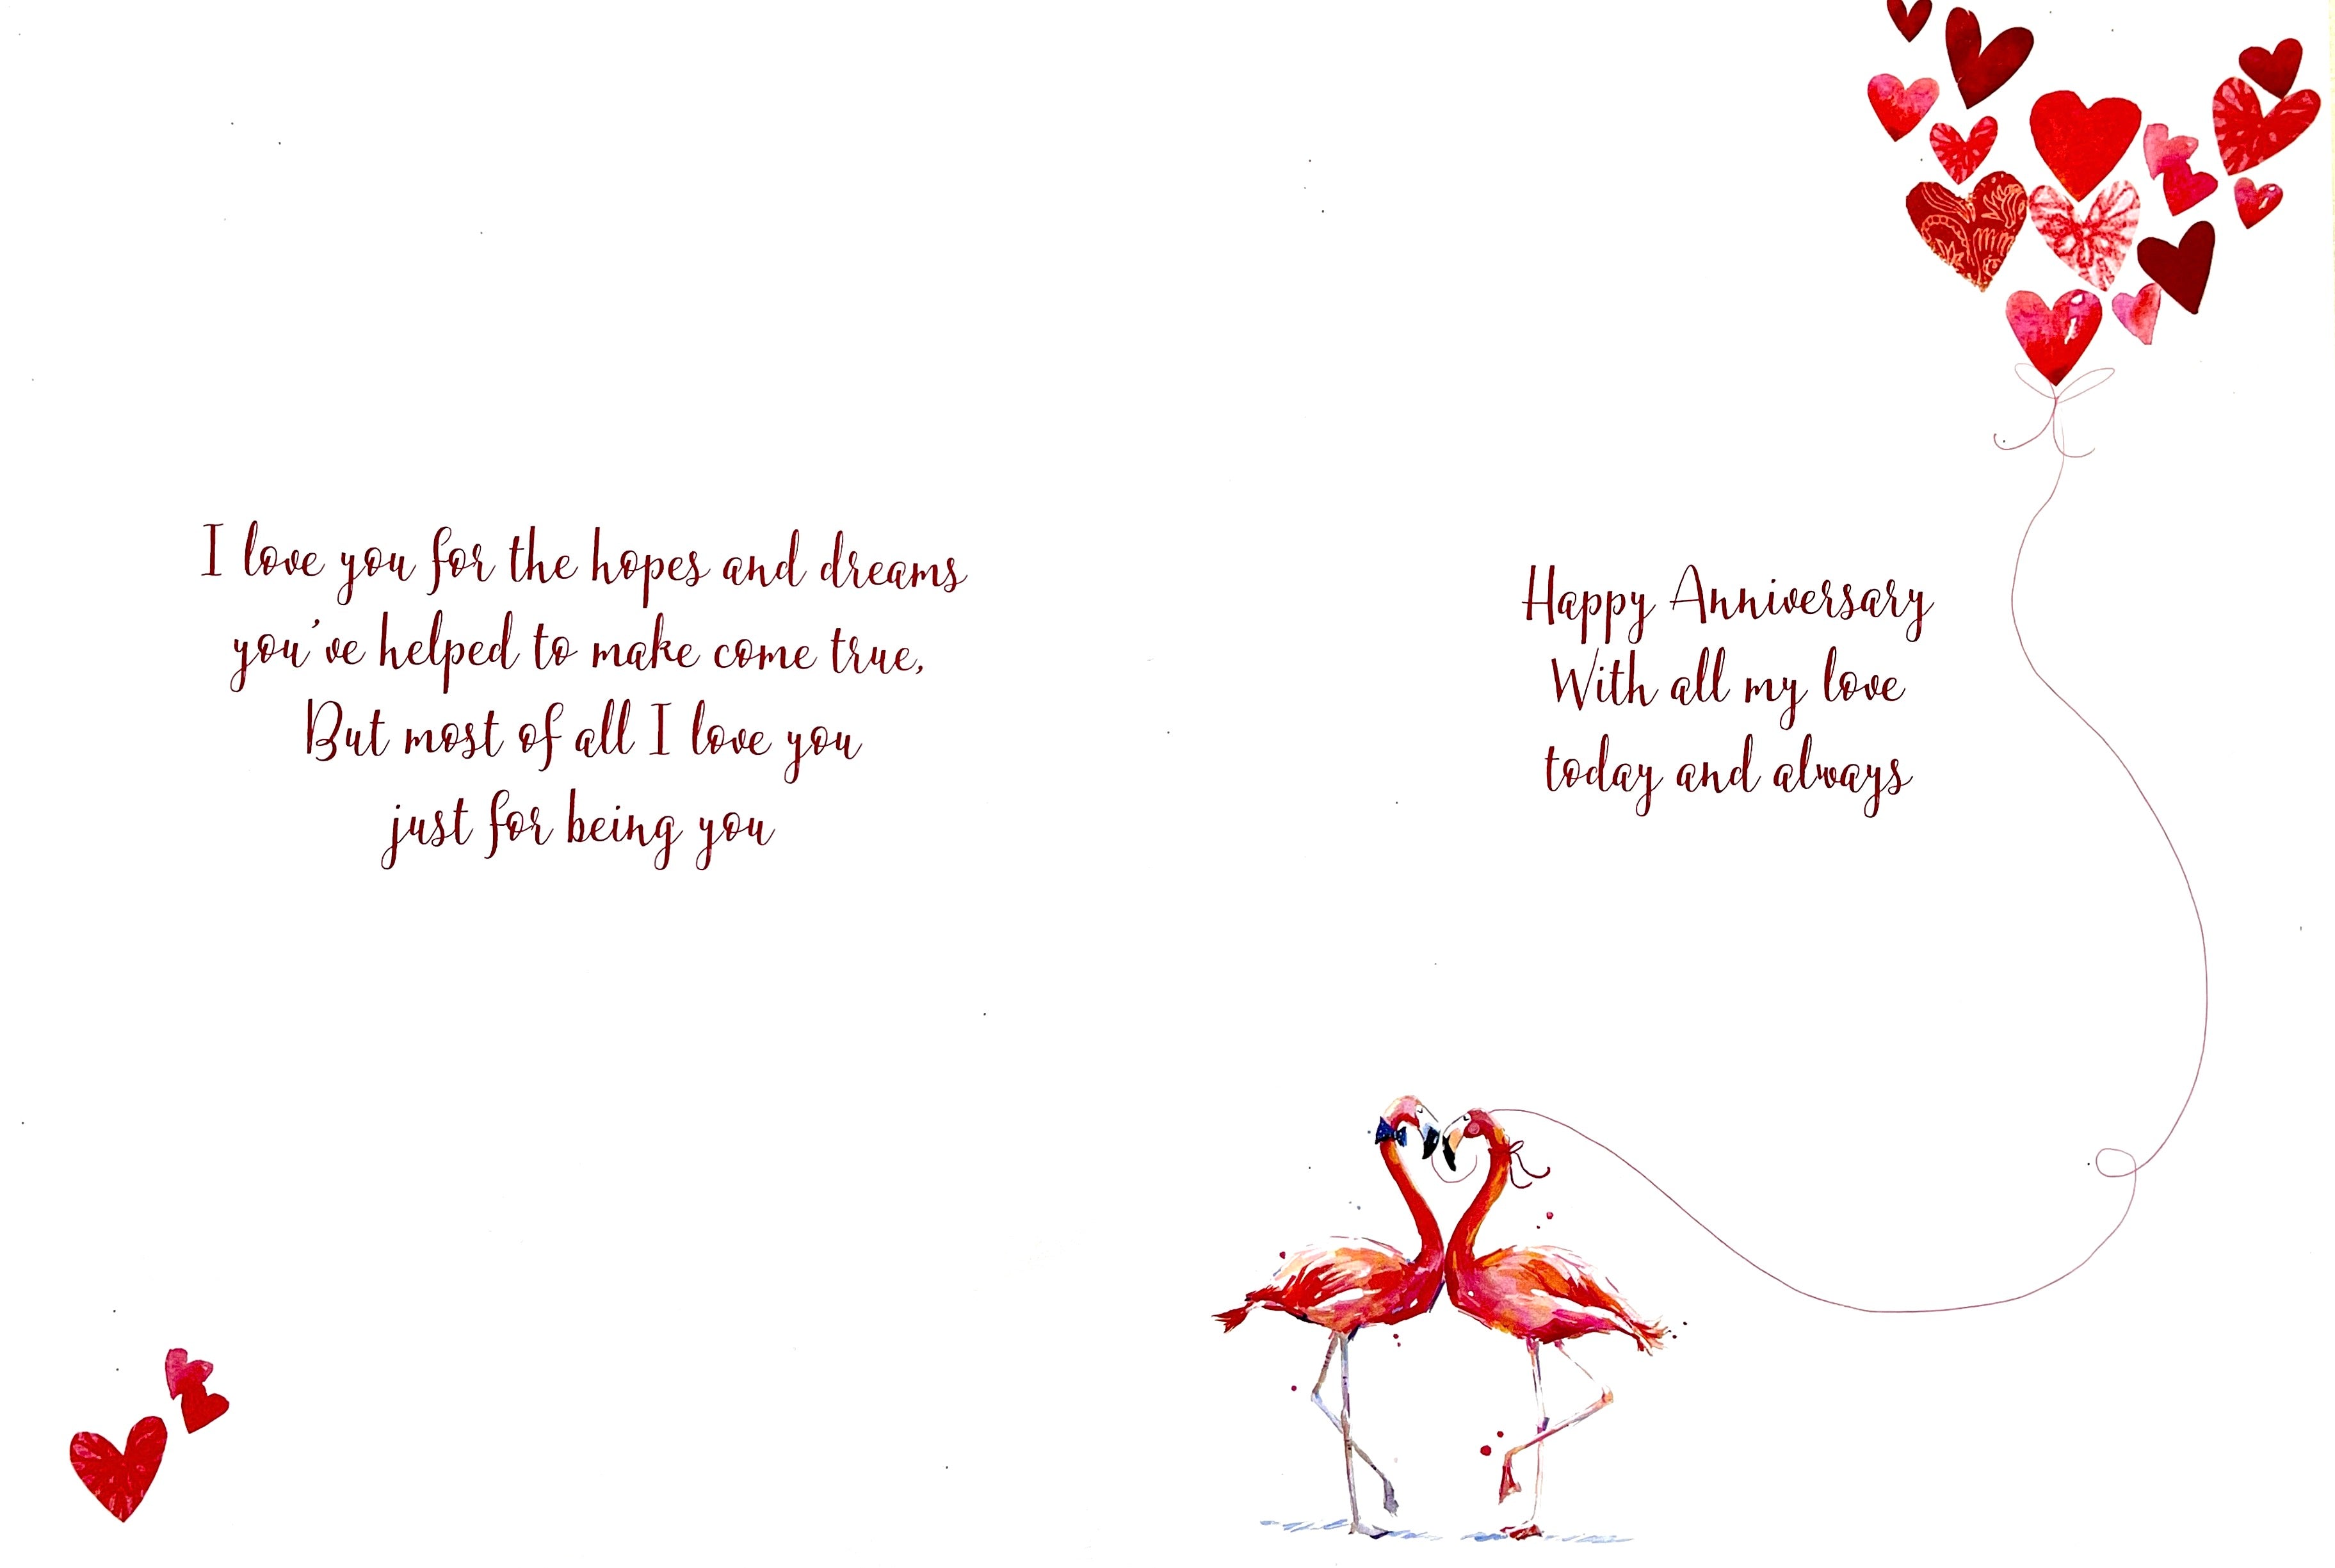 I love you for the hopes and dreams
you've helped to make come true,
But most of all I love you
just for being you
Happy Anniversary
With all my love
today and always